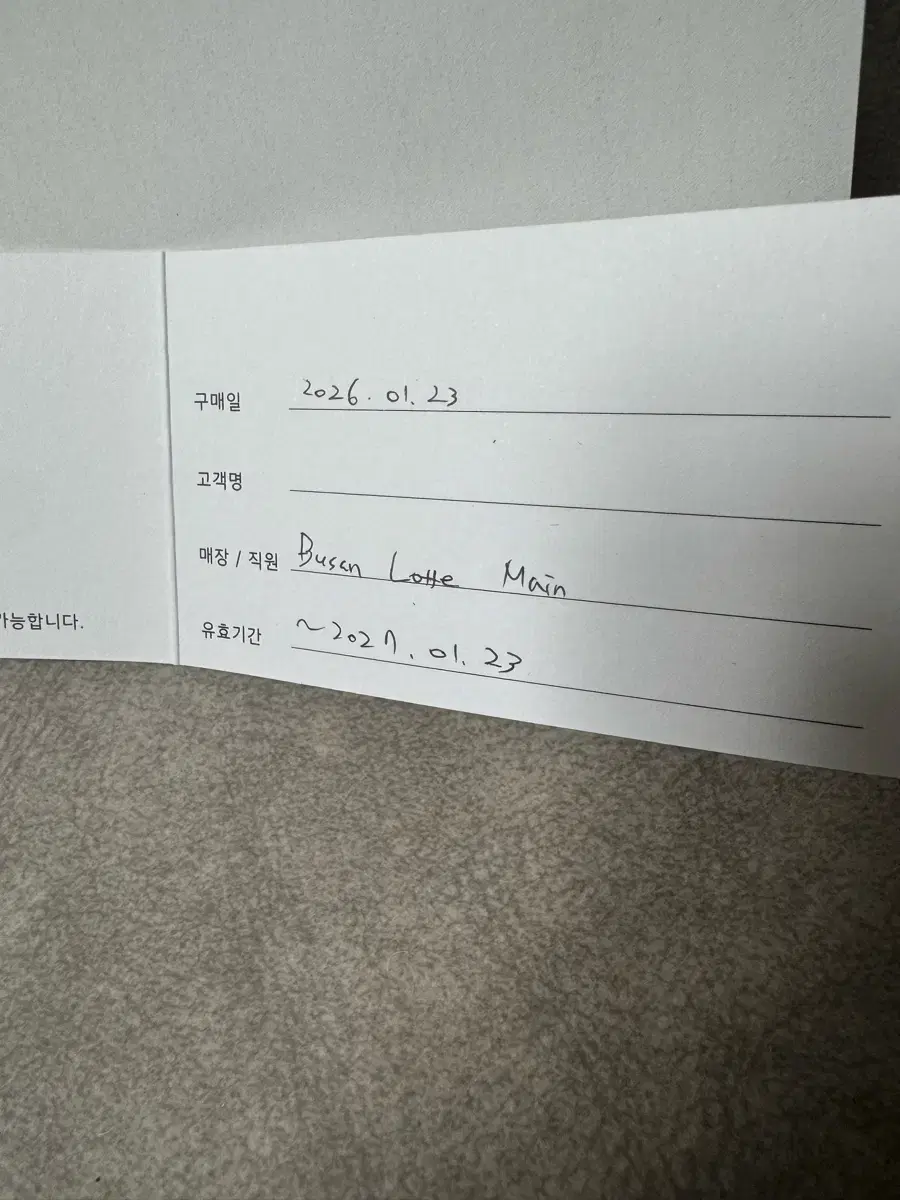 구매일 2026. 01. 23
고객명
매장 / 직원 Busan Lotte Main
유효기간 ~2027. 01. 23
가능합니다.